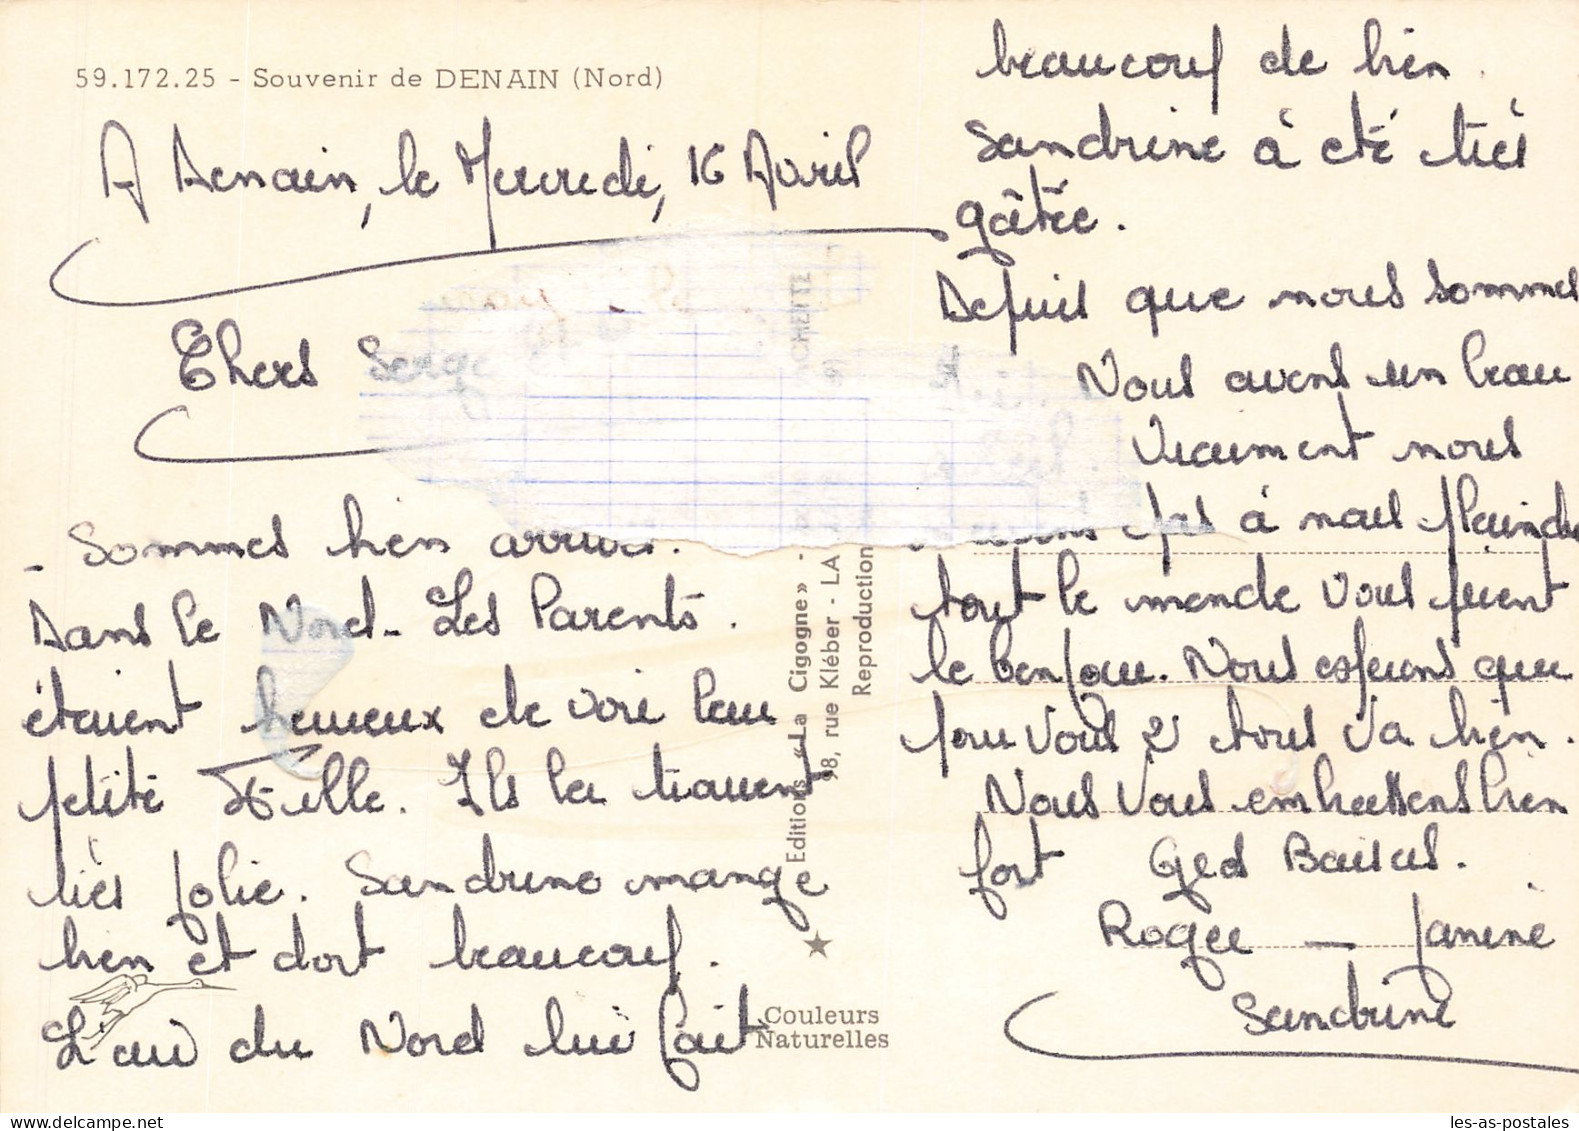 59.172.25 - Souvenir de DENAIN (Nord)
A Denain, le Mercredi, 16 Avril
Chers Serge
- Sommes bien arrivés.
Dans le Nord - Les Parents.
étaient heureux de voir leur
petite Fille. Ils la trouvent
très jolie. Sandrine mange
bien et dort beaucoup.
L'air du Nord lui fait
beaucoup de bien.
Sandrine à été très
gâtée.
Depuis que nous sommes
Nous avons un beau
Vraiment nous
pas à nous plaindre
tout le monde vous disent
le bonjour. Nous espérons que
pour Vous 2 tous Va bien.
Nous Vous embrassons bien
fort Gros Baisers.
Roger — Janine
Sandrine
Editions «La Cigogne» -
98, rue Kléber - LA
Reproduction
CHENTE
Couleurs
Naturelles
les-as-postales